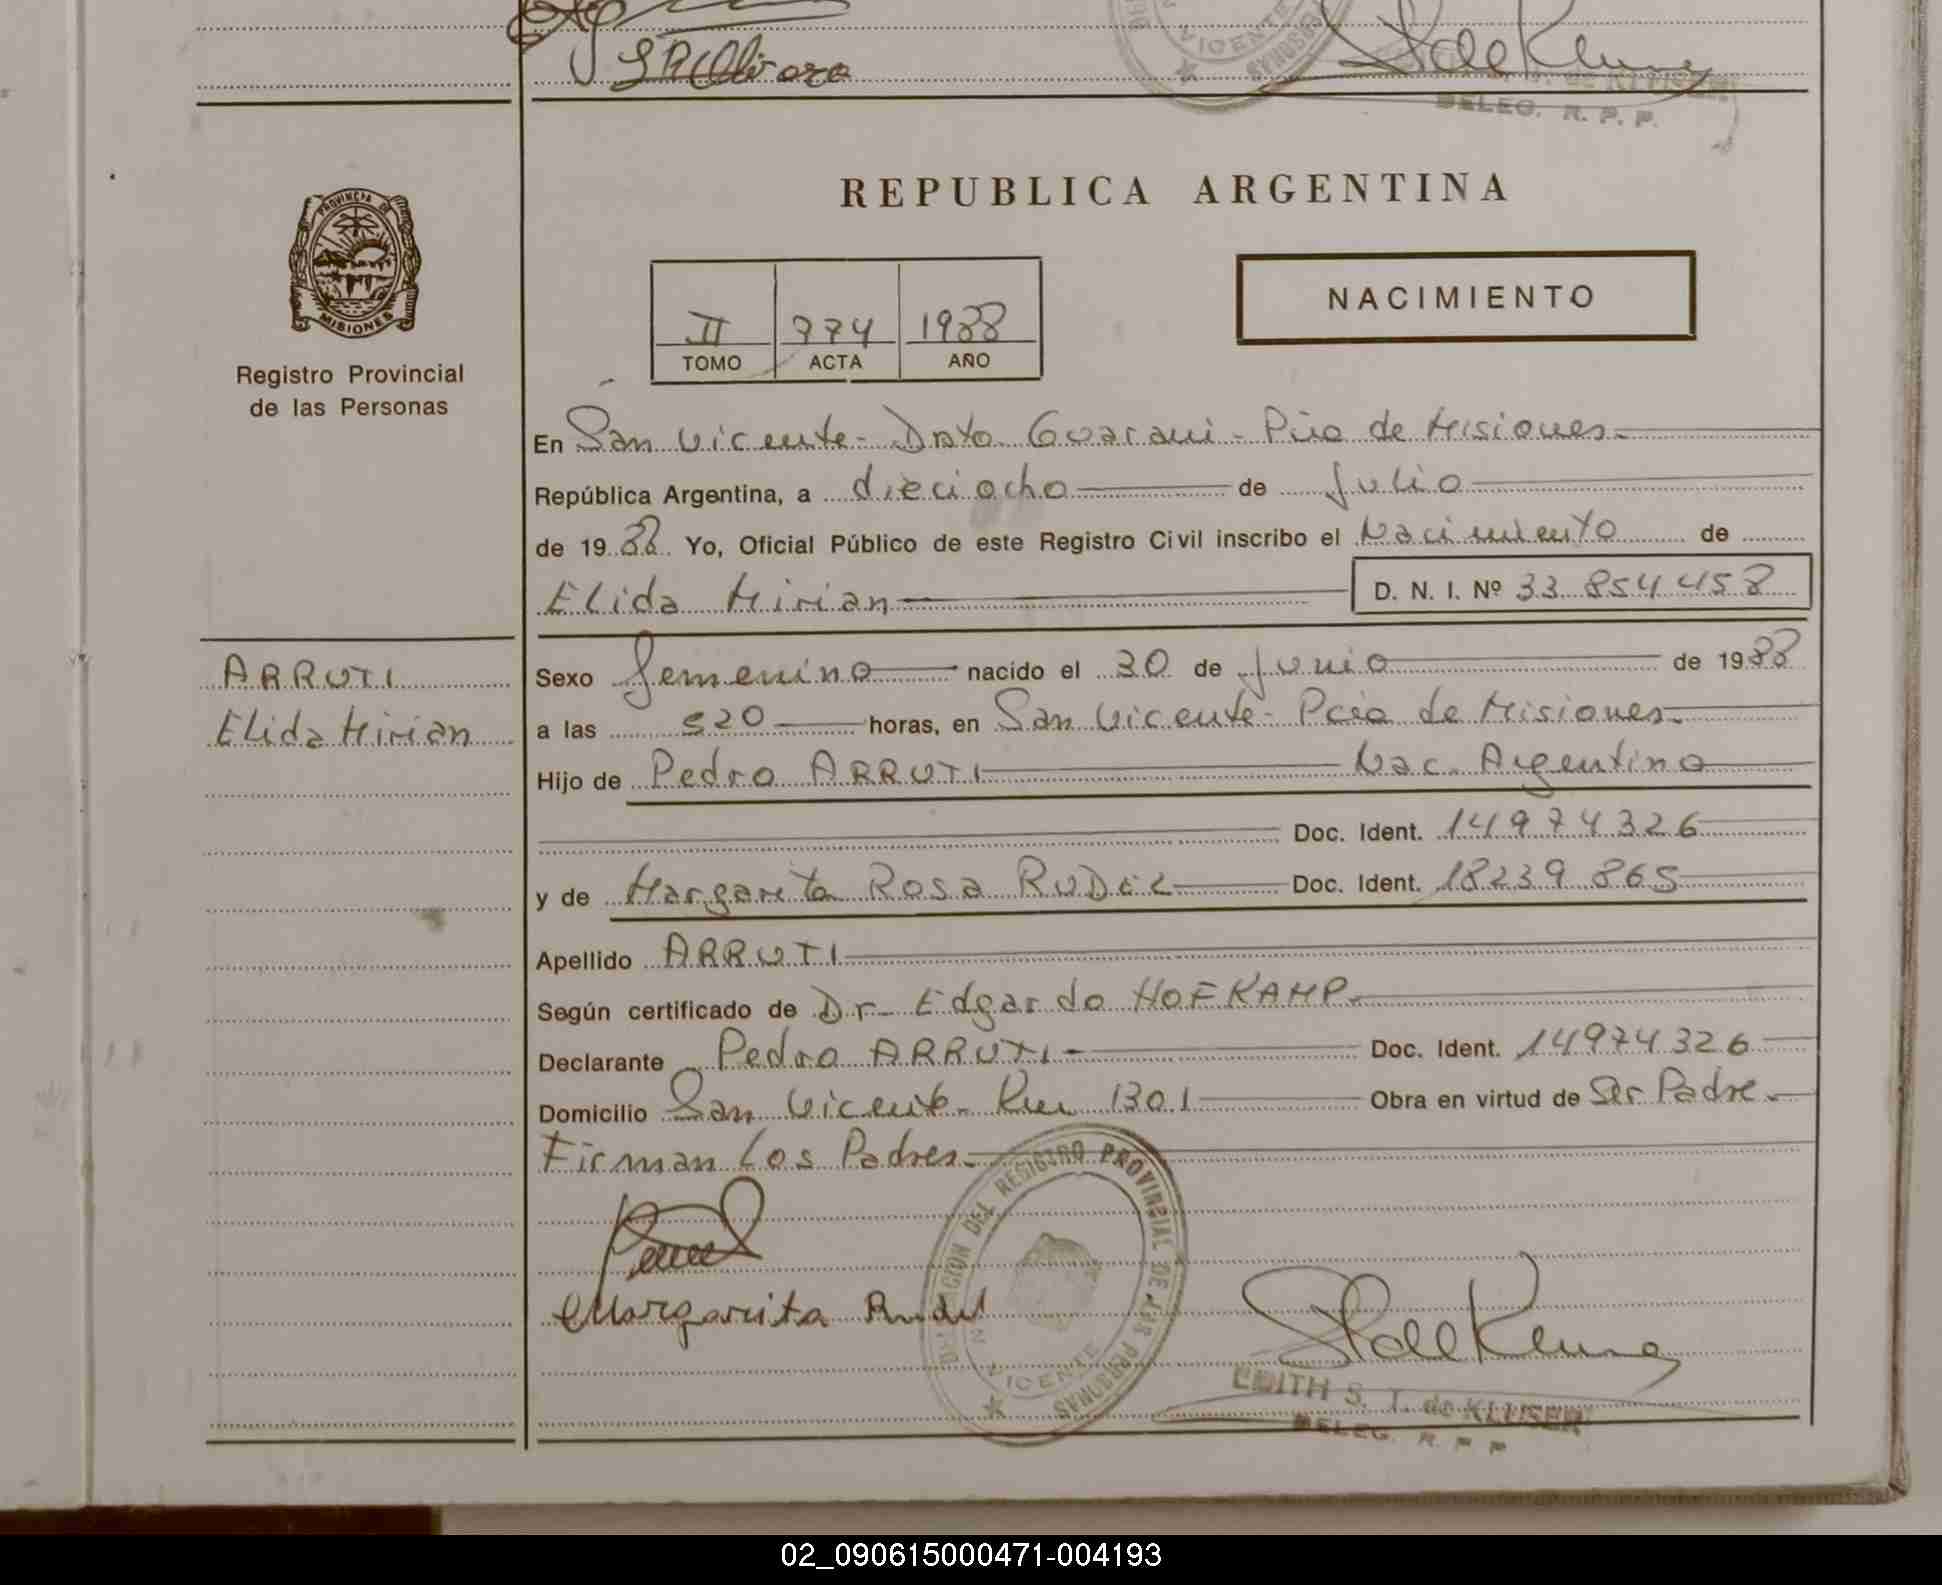 REPUBLICA ARGENTINA
PROVINCIA DE
MISIONES
Registro Provincial
de las Personas
NACIMIENTO
II 774 1988
TOMO ACTA AÑO
En San Vicente - Dpto Guarani - Pcia de Misiones
República Argentina, a dieciocho de Julio
de 1988 Yo, Oficial Público de este Registro Civil inscribo el Nacimiento de
Elida Mirian D. N. I. Nº 33.854.458
ARRUTI
Elida Mirian
Sexo femenino nacido el 30 de Junio de 1988
a las 520 horas, en San Vicente - Pcia de Misiones.
Hijo de Pedro ARRUTI Nac. Argentina
Doc. Ident. 14974326
y de Margarita Rosa RUDEL Doc. Ident. 18239865
Apellido ARRUTI
Según certificado de Dr. Edgardo HOFKAMP.
Declarante Pedro ARRUTI - Doc. Ident. 14974326
Domicilio San Vicente - Km 1301 Obra en virtud de Ser Padre.
Firman Los Padres.
Margarita Rudel
DIRECCION DEL REGISTRO PROVINCIAL DE LAS PERSONAS
VICENTE
EDITH S. T. de KLUSER
DELEG. R. P. P.
DELEG. R. P. P.
02_090615000471-004193